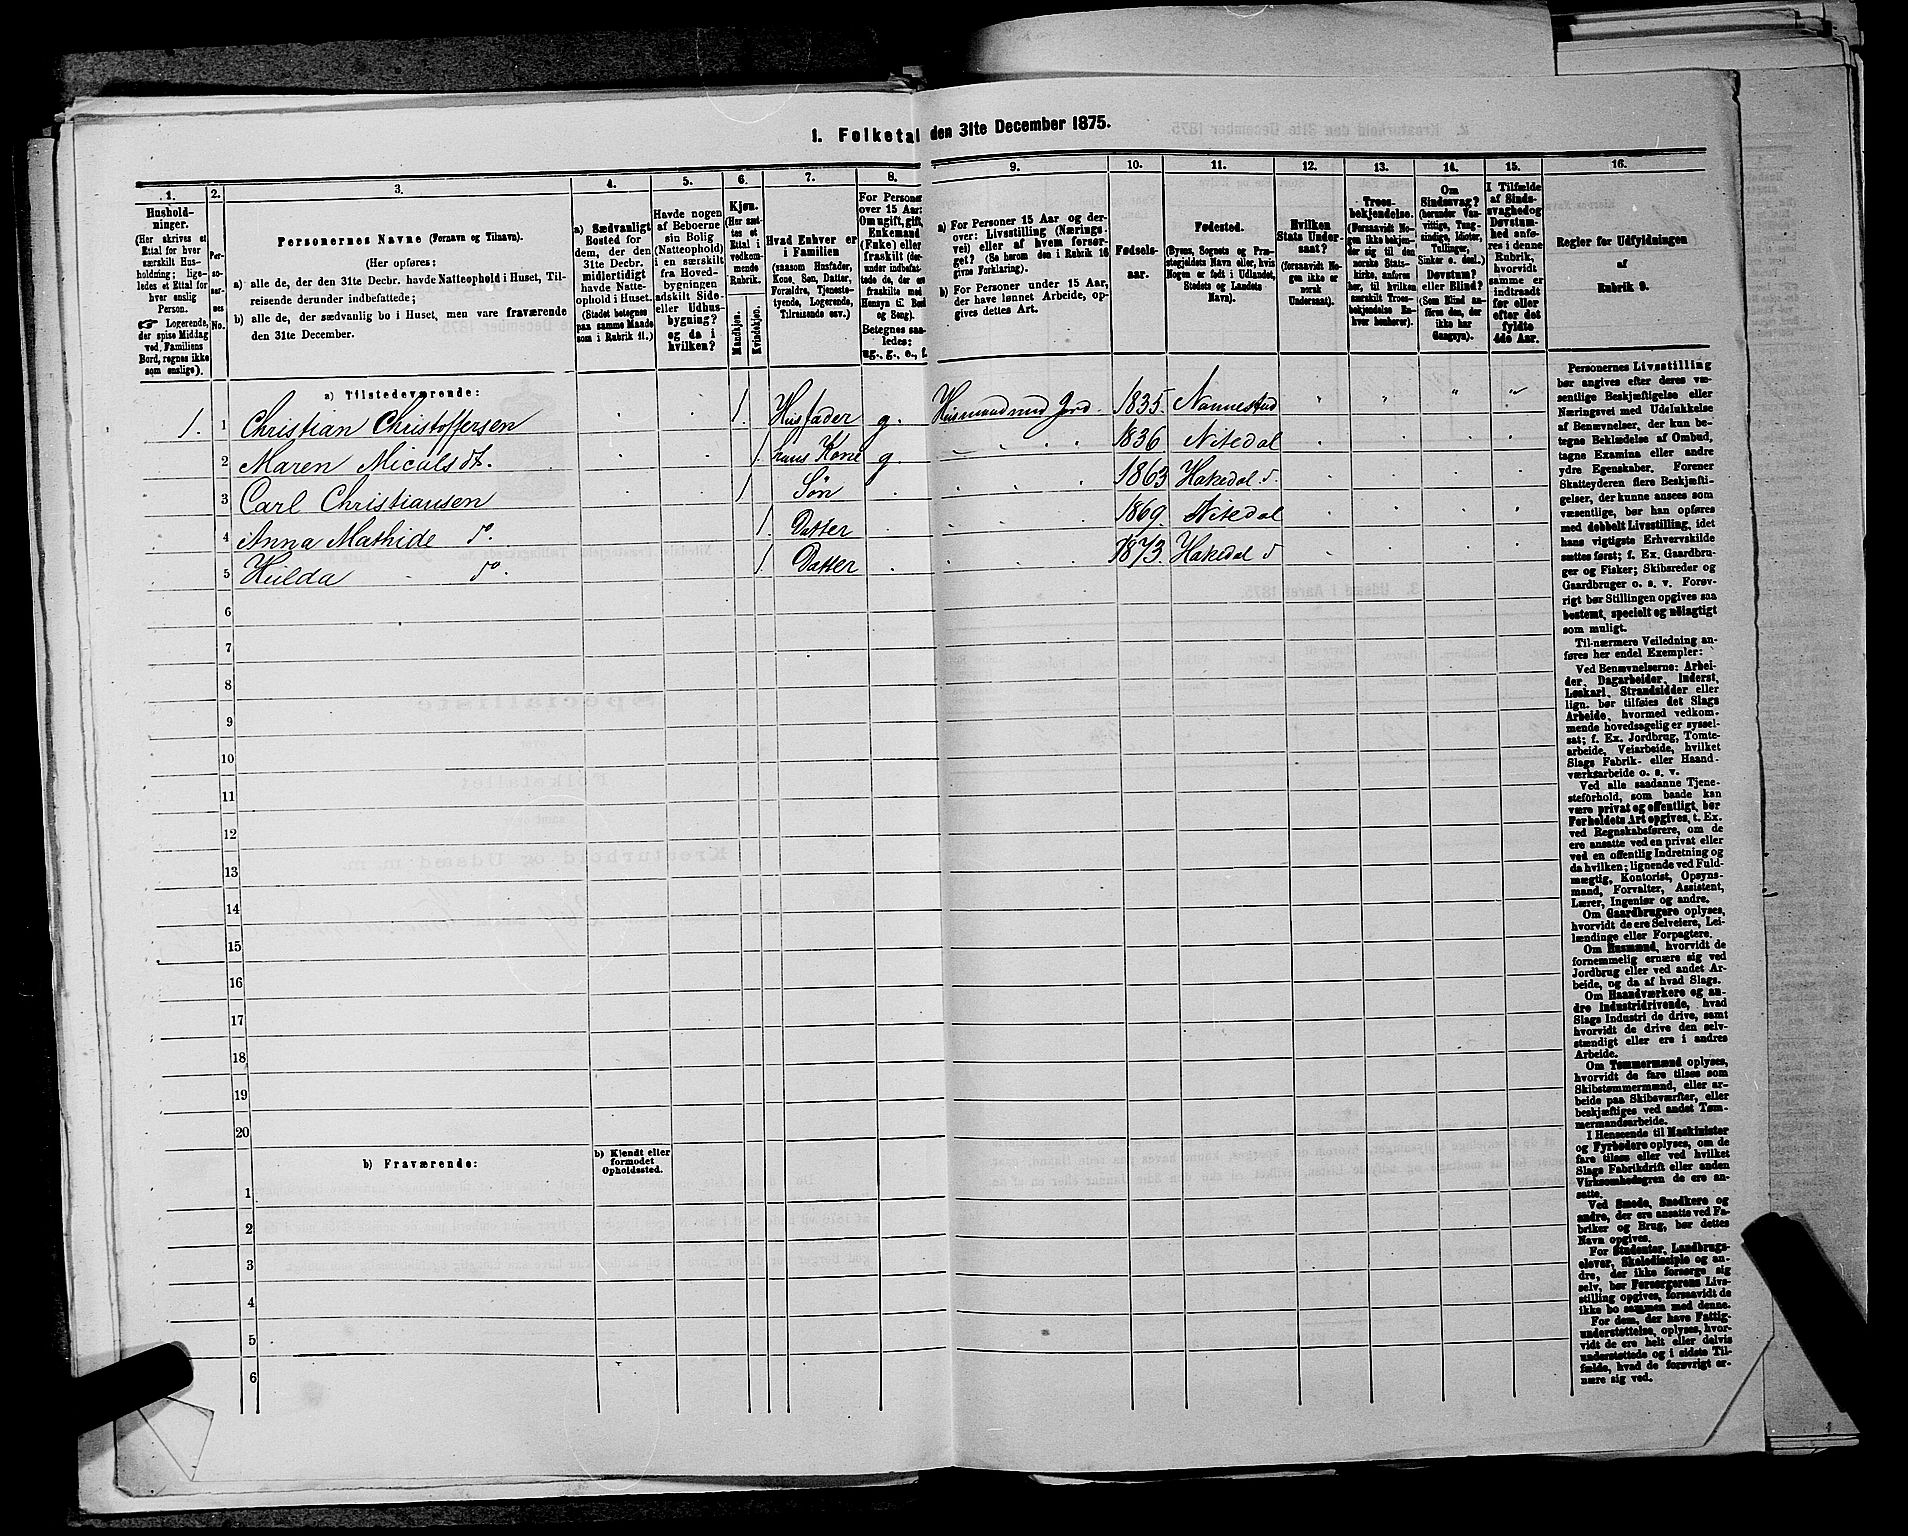 1. Folketal den 31te December 1875.
1. 2. 3. 4. 5. 6. 7. 8. 9. 10. 11. 12. 13. 14. 15. 16.
Hushold-
ninger.
(Her skrives et
Ettal for hver
særskilt Hus-
holdning; lige-
ledes et Ettal for
hver enslig
Person.
☞ Logerende,
der spise Middag
ved Familiens
Bord, regnes ikke
som enslige).
Per-
so-
ner-
nes
No.
Personernes Navne (Fornavn og Tilnavn).
(Her opføres:
a) alle de, der den 31te Decbr. havde Natteophold i Huset, Til-
reisende derunder indbefattede;
b) alle de, der sædvanlig bo i Huset, men vare fraværende
den 31te December.
a) Sædvanligt
Bosted for
dem, der den
31te Decbr.
midlertidigt
havde Natte-
ophold i Huset.
(Stedet betegnes
paa samme Maade
som i Rubrik 11.)
Havde nogen
af Beboerne
sin Bolig
(Natteophold)
i en særskilt
fra Hoved-
bygningen
adskilt Side-
eller Udhus-
bygning?
og da i
hvilken?
Kjøn.
(Her sæt-
tes et
Ettal i
vedkom-
mende
Rubrik.
Mandkjøn.
Kvindekjøn.
Hvad Enhver er
i Familien
(saasom Husfader,
Kone, Søn, Datter,
Forældre, Tjeneste-
tyende, Logerende,
Tilreisende osv.)
For Personer
over 15 Aar:
Om ugift, gift,
Enkemand
(Enke) eller
fraskilt (der-
under indbefat-
tede de, der ere
fraskilte med
Hensyn til Bord
og Seng).
Betegnes saa-
ledes:
ug., g., e., f.
a) For Personer 15 Aar og der-
over: Livsstilling (Nærings-
vei) eller af hvem forsør-
get? (Se herom den i Rubrik 16
givne Forklaring).
b) For Personer under 15 Aar,
der have lønnet Arbeide, op-
gives dettes Art.
Fødsels-
aar.
Fødested.
(Byens, Sognets og Præ-
stegjeldets Navn eller, hvis
Nogen er født i Udlandet,
Stedets og Landets
Navn).
Hvilken
Stats Under-
saat?
(forsaavidt No-
gen ikke er
norsk
Undersaat).
Troes-
bekjendelse.
(Forsaavidt No-
gen ikke bekjen-
der sig til den
norske Stats-
kirke, anføres
her, til hvilken
særskilt Troes-
bekjendelse En-
hver henhører).
Om
Sindssvag?
(herunder Van-
vittige, Tung-
sindige, Idioter,
Tullinger,
Sinker o. desl.)
Døvstum?
eller Blind?
(Som Blind an-
føres den, der
ikke har
Gangsyn).
I Tilfælde
af Sinds-
svaghed og
Døvstum-
hed anfø-
res i denne
Rubrik,
hvorvidt
samme er
indtraadt
før eller
efter det
fyldte
4de Aar.
Regler for Udfyldningen
af
Rubrik 9.
a) Tilstedeværende:
1. 1 Christian Christoffersen 1. Husfader g. Husmand med Jord. 1835. Nannestad
2 Maren Micalsdt. 1 hans Kone g. 1836 Nitedal
3 Carl Christiansen 1 Søn 1863 Hakedal
4 Anna Mathide do. 1 Datter 1869. Nitedal
5 Hulda do. 1 Datter 1873. Hakedal
6
7
8
9
10
11
12
13
14
15
16
17
18
19
20
b) Fraværende:
b) Kjendt eller
formodet
Opholdssted.
1
2
3
4
5
6
Personernes Livsstilling
bør angives efter deres væ-
sentlige Beskjæftigelse eller
Næringsvei med Udelukkelse
af Benævnelser, der kun be-
tegne Beklædelse af Ombud,
tagne Examina eller andre
ydre Egenskaber. Forener
Skatteyderen flere Beskjæfti-
gelser, der kunne ansees som
væsentlige, bør han opføres
med dobbelt Livsstilling, idet
hans vigtigste Erhvervskilde
sættes først; f. Ex. Gaardbru-
ger og Fisker; Skibsreder og
Gaardbruger o. s. v. Forøv-
rigt bør Stillingen opgives saa
bestemt, specielt og nøiagtigt
som muligt.
Til nærmere Veiledning an-
føres her endel Exempler:
Ved Benævnelserne: Arbei-
der, Dagarbeider, Inderst,
Løskarl, Strandsidder eller
lign. bør tilføies det Slags
Arbeide, hvormed vedkom-
mende hovedsagelig er syssel-
sat; f. Ex. Jordbrug, Tomte-
arbeide, Veiarbeide, hvilket
Slags Fabrik- eller Haand-
værksarbeide o. s. v.
Ved alle saadanne Tjene-
steforhold, som baade kan
være privat og offentligt, bør
Forholdets Art opgives, t. Ex.
ved Regnskabsførere, om de
ere ansatte ved en privat eller
ved en offentlig Indretning og
da hvilken; lignende ved Fuld-
mægtig, Kontorist, Opsyns-
mand, Forvalter, Assistent,
Lærer, Ingeniør og andre.
Om Gaardbrugere oplyses,
hvorvidt de ere Selveiere, Lei-
lændinge eller Forpagtere.
Om Husmænd, hvorvidt de
fornemmelig ernære sig ved
Jordbrug eller ved andet Ar-
beide, og da af hvad Slags.
Om Haandværkere og an-
dre Industridrivende, hvad
Slags Industri de drive, samt
hvorvidt de drive den selv-
stændigt eller ere i andres
Arbeide.
Om Tømmermænd oplyses,
hvorvidt de fare tilsøs som
Skibstømmermænd, eller ar-
beide paa Skibsværfter, eller
beskjæftiges ved andet Tøm-
mermandsarbeide.
I Henseende til Maskinister
og Fyrbødere oplyses, om de
fare tilsøs eller ved hvilket
Slags Fabrikdrift eller anden
Virksomhedsgren de ere an-
satte.
Ved Smede, Snedkere og
andre, der ere ansatte ved Fa-
briker og Brug, bør dettes
Navn opgives.
For Studenter, Landbrugs-
elever, Skoledisciple og an-
dre, der ikke forsørge sig
selv, bør Forsørgerens Livs-
stilling opgives, forsaavidt de
ikke bo sammen med denne.
For dem, der have Fattig-
understøttelse, oplyses, hvor-
vidt de ere helt eller delvis
understøttede og i sidste Til-
fælde, hvad de forøvrigt er-
nære sig ved.